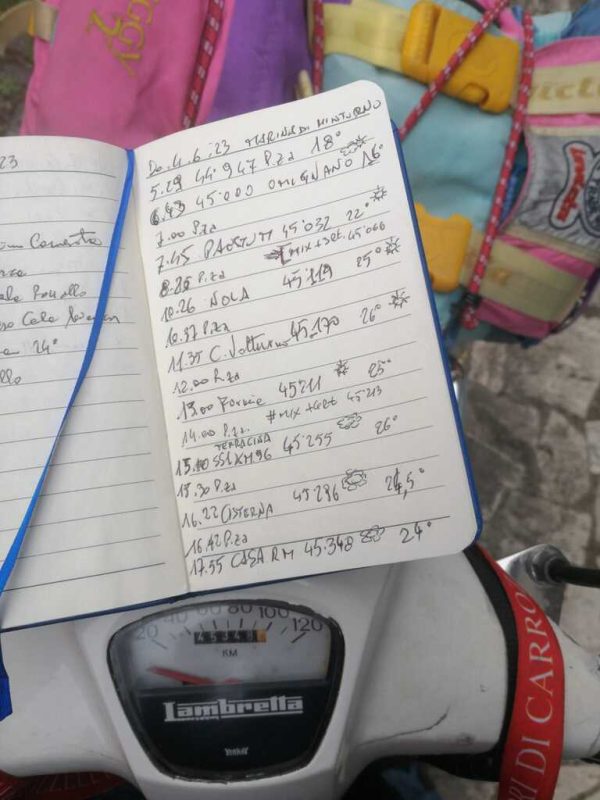 GGY
2
Invicta
23
24°
Do. 4.6.23 MARINA DI MINTURNO
5.29 44.947 P.za 18°
6.43 45.000 OMIGNANO 16°
7.00 P.za
7.45 PAESTUM 45.032 22°
8.25 P.za MIX+Det. 45.066
10.26 NOLA 45.119 25°
10.37 P.za
11.35 C. Volturno 45.170 26°
12.00 P.za
13.00 Formie 45211 25°
14.00 P.za. #MIX+Det 45.213
TERRACINA
15.10 SS1 KM96 45.255 26°
15.30 P.za
16.22 CISTERNA 45.296 24,5°
16.42 P.za
17.55 CASA RM 45.348 24°
20 40 60 80 100 120
4534
KM
Lambretta
Veglia
RI DI CARRO